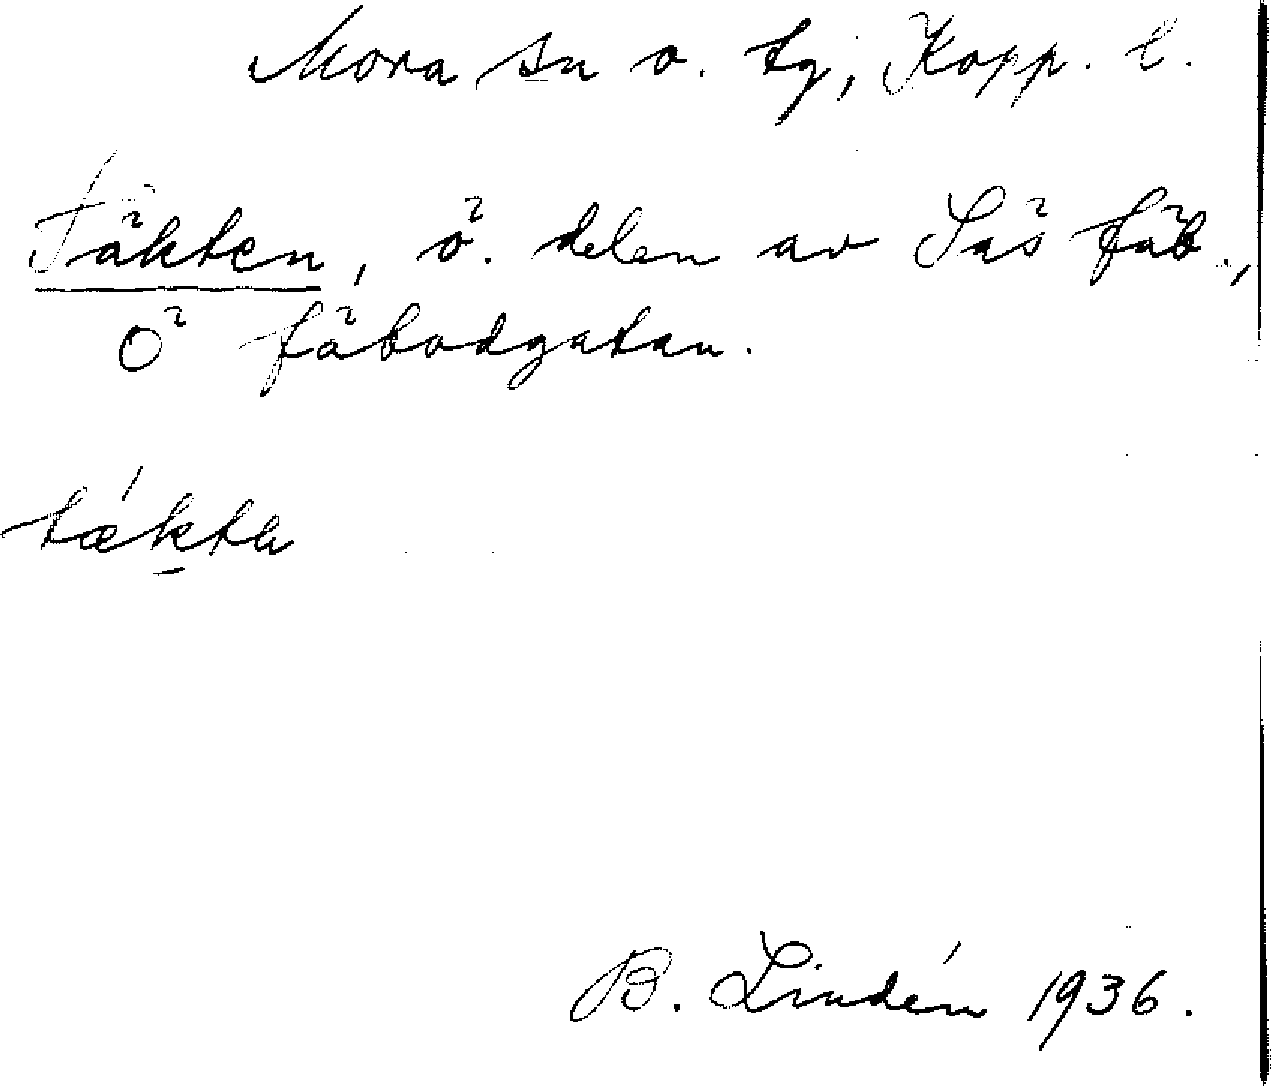 Mora sn o. tg, Kopp. l.
Täkten, ö. delen av Säs fäb.,
Ö fäbodgatan.
täktn
B. Lindén 1936.